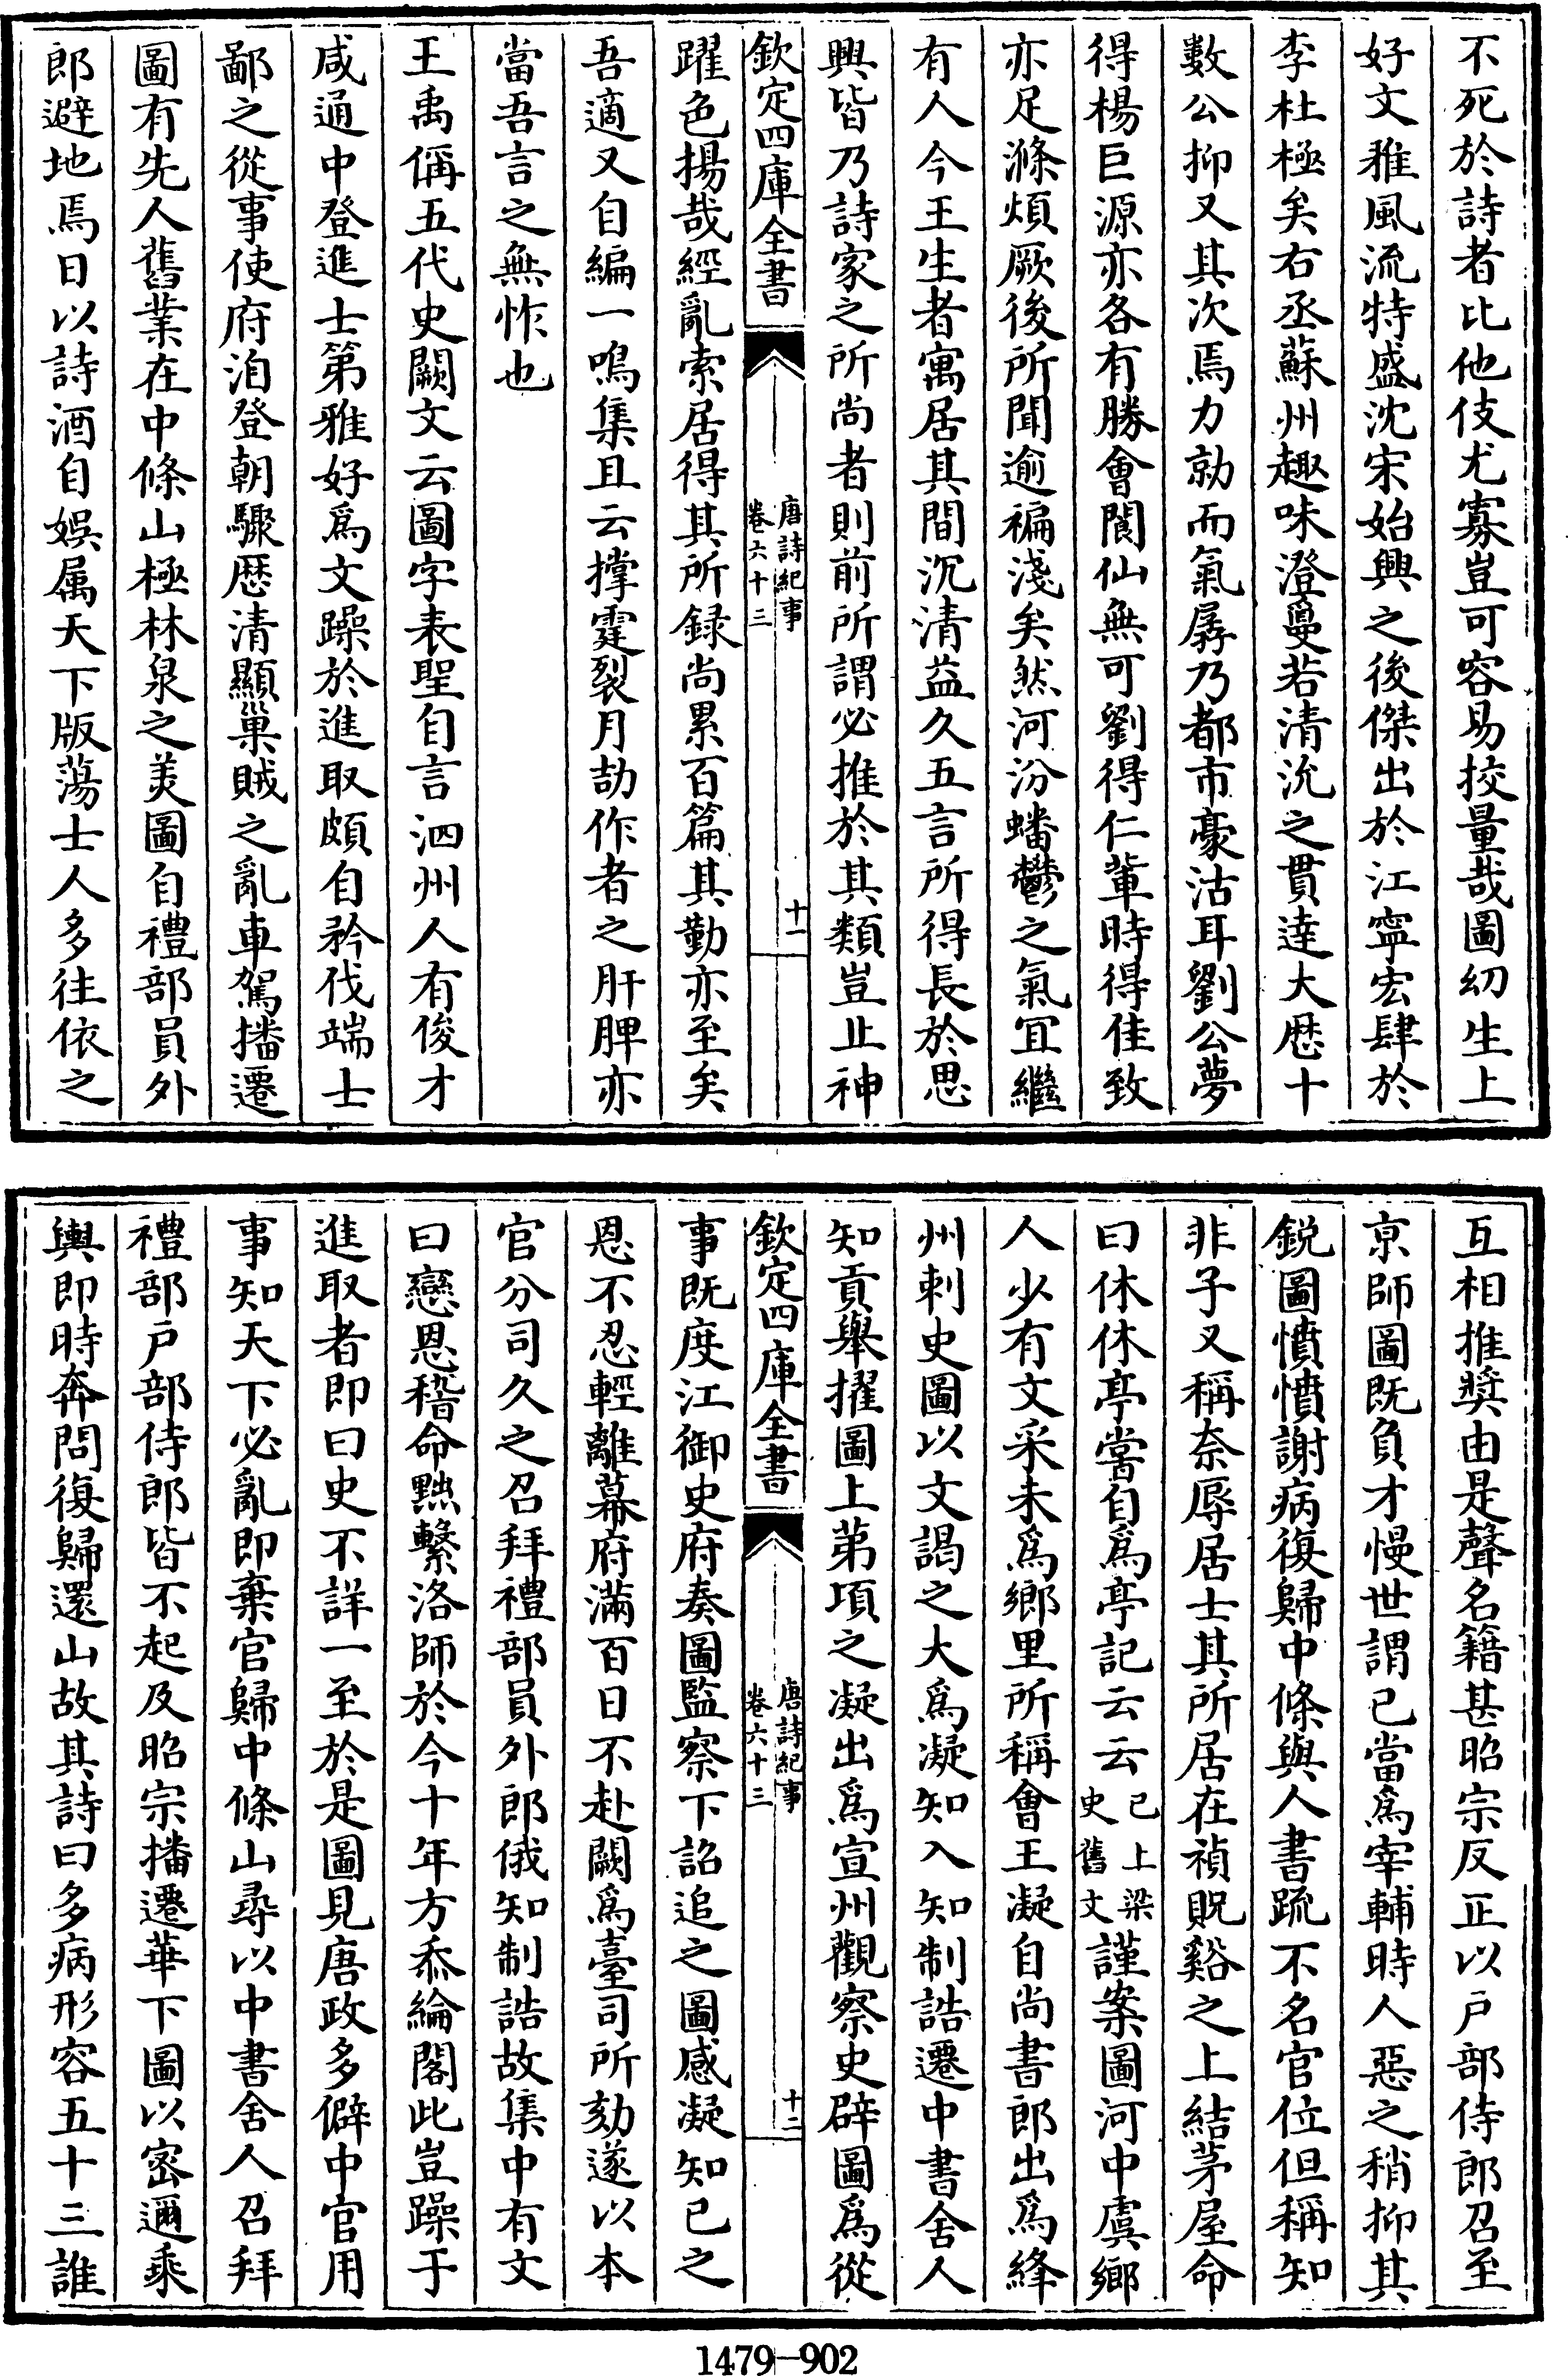 不死於詩者比他伎尤寡豈可容易挍量哉圖幼生上
好文雅風流特盛沈宋始興之後傑出於江寧宏肆於
李杜極矣右丞蘇州趣味澄敻若清沇之貫達大厯十
數公抑又其次焉力勍而氣孱乃都市豪沽耳劉公夢
得楊巨源亦各有勝會閬仙無可劉得仁軰時得佳致
亦足滌煩厥後所聞逾褊淺矣然河汾蟠鬱之氣宜繼
有人今王生者寓居其間沉清益久五言所得長於思
興皆乃詩家之所尚者則前所謂必推於其類豈止神
欽定四庫全書
唐詩紀事
卷六十三
十一
躍色揚哉經亂索居得其所録尚累百篇其勤亦至矣
吾適又自編一鳴集且云撑霆裂月劼作者之肝脾亦
當吾言之無怍也
王禹偁五代史闕文云圖字表聖自言泗州人有俊才
咸通中登進士第雅好爲文躁於進取頗自矜伐端士
鄙之從事使府洎登朝驟厯清顯巢賊之亂車駕播遷
圖有先人舊業在中條山極林泉之美圖自禮部員外
郎避地焉日以詩酒自娛属天下版蕩士人多往依之
互相推奬由是聲名籍甚昭宗反正以戶部侍郎召至
京師圖既負才慢世謂已當爲宰輔時人惡之稍抑其
鋭圖憤憤謝病復歸中條與人書疏不名官位但稱知
非子又稱奈辱居士其所居在禎貺谿之上結茅屋命
曰休休亭嘗自爲亭記云云已上梁史舊文謹案圖河中虞鄉
人少有文采未爲鄉里所稱會王凝自尚書郎出爲絳
州刺史圖以文謁之大爲凝知入知制誥遷中書舍人
知貢舉擢圖上第項之凝出爲宣州觀察史辟圖爲從
欽定四庫全書
唐詩紀事
卷六十三
十二
事既度江御史府奏圖監察下詔追之圖感凝知已之
恩不忍輕離幕府滿百日不赴闕爲臺司所劾遂以本
官分司久之召拜禮部員外郎俄知制誥故集中有文
曰戀恩稽命黜繫洛師於今十年方忝綸閣此豈躁于
進取者即曰史不詳一至於是圖見唐政多僻中官用
事知天下必亂即棄官歸中條山尋以中書舍人召拜
禮部戶部侍郎皆不起及昭宗播遷華下圖以密邇乘
輿即時奔問復歸還山故其詩曰多病形容五十三誰
1479-902